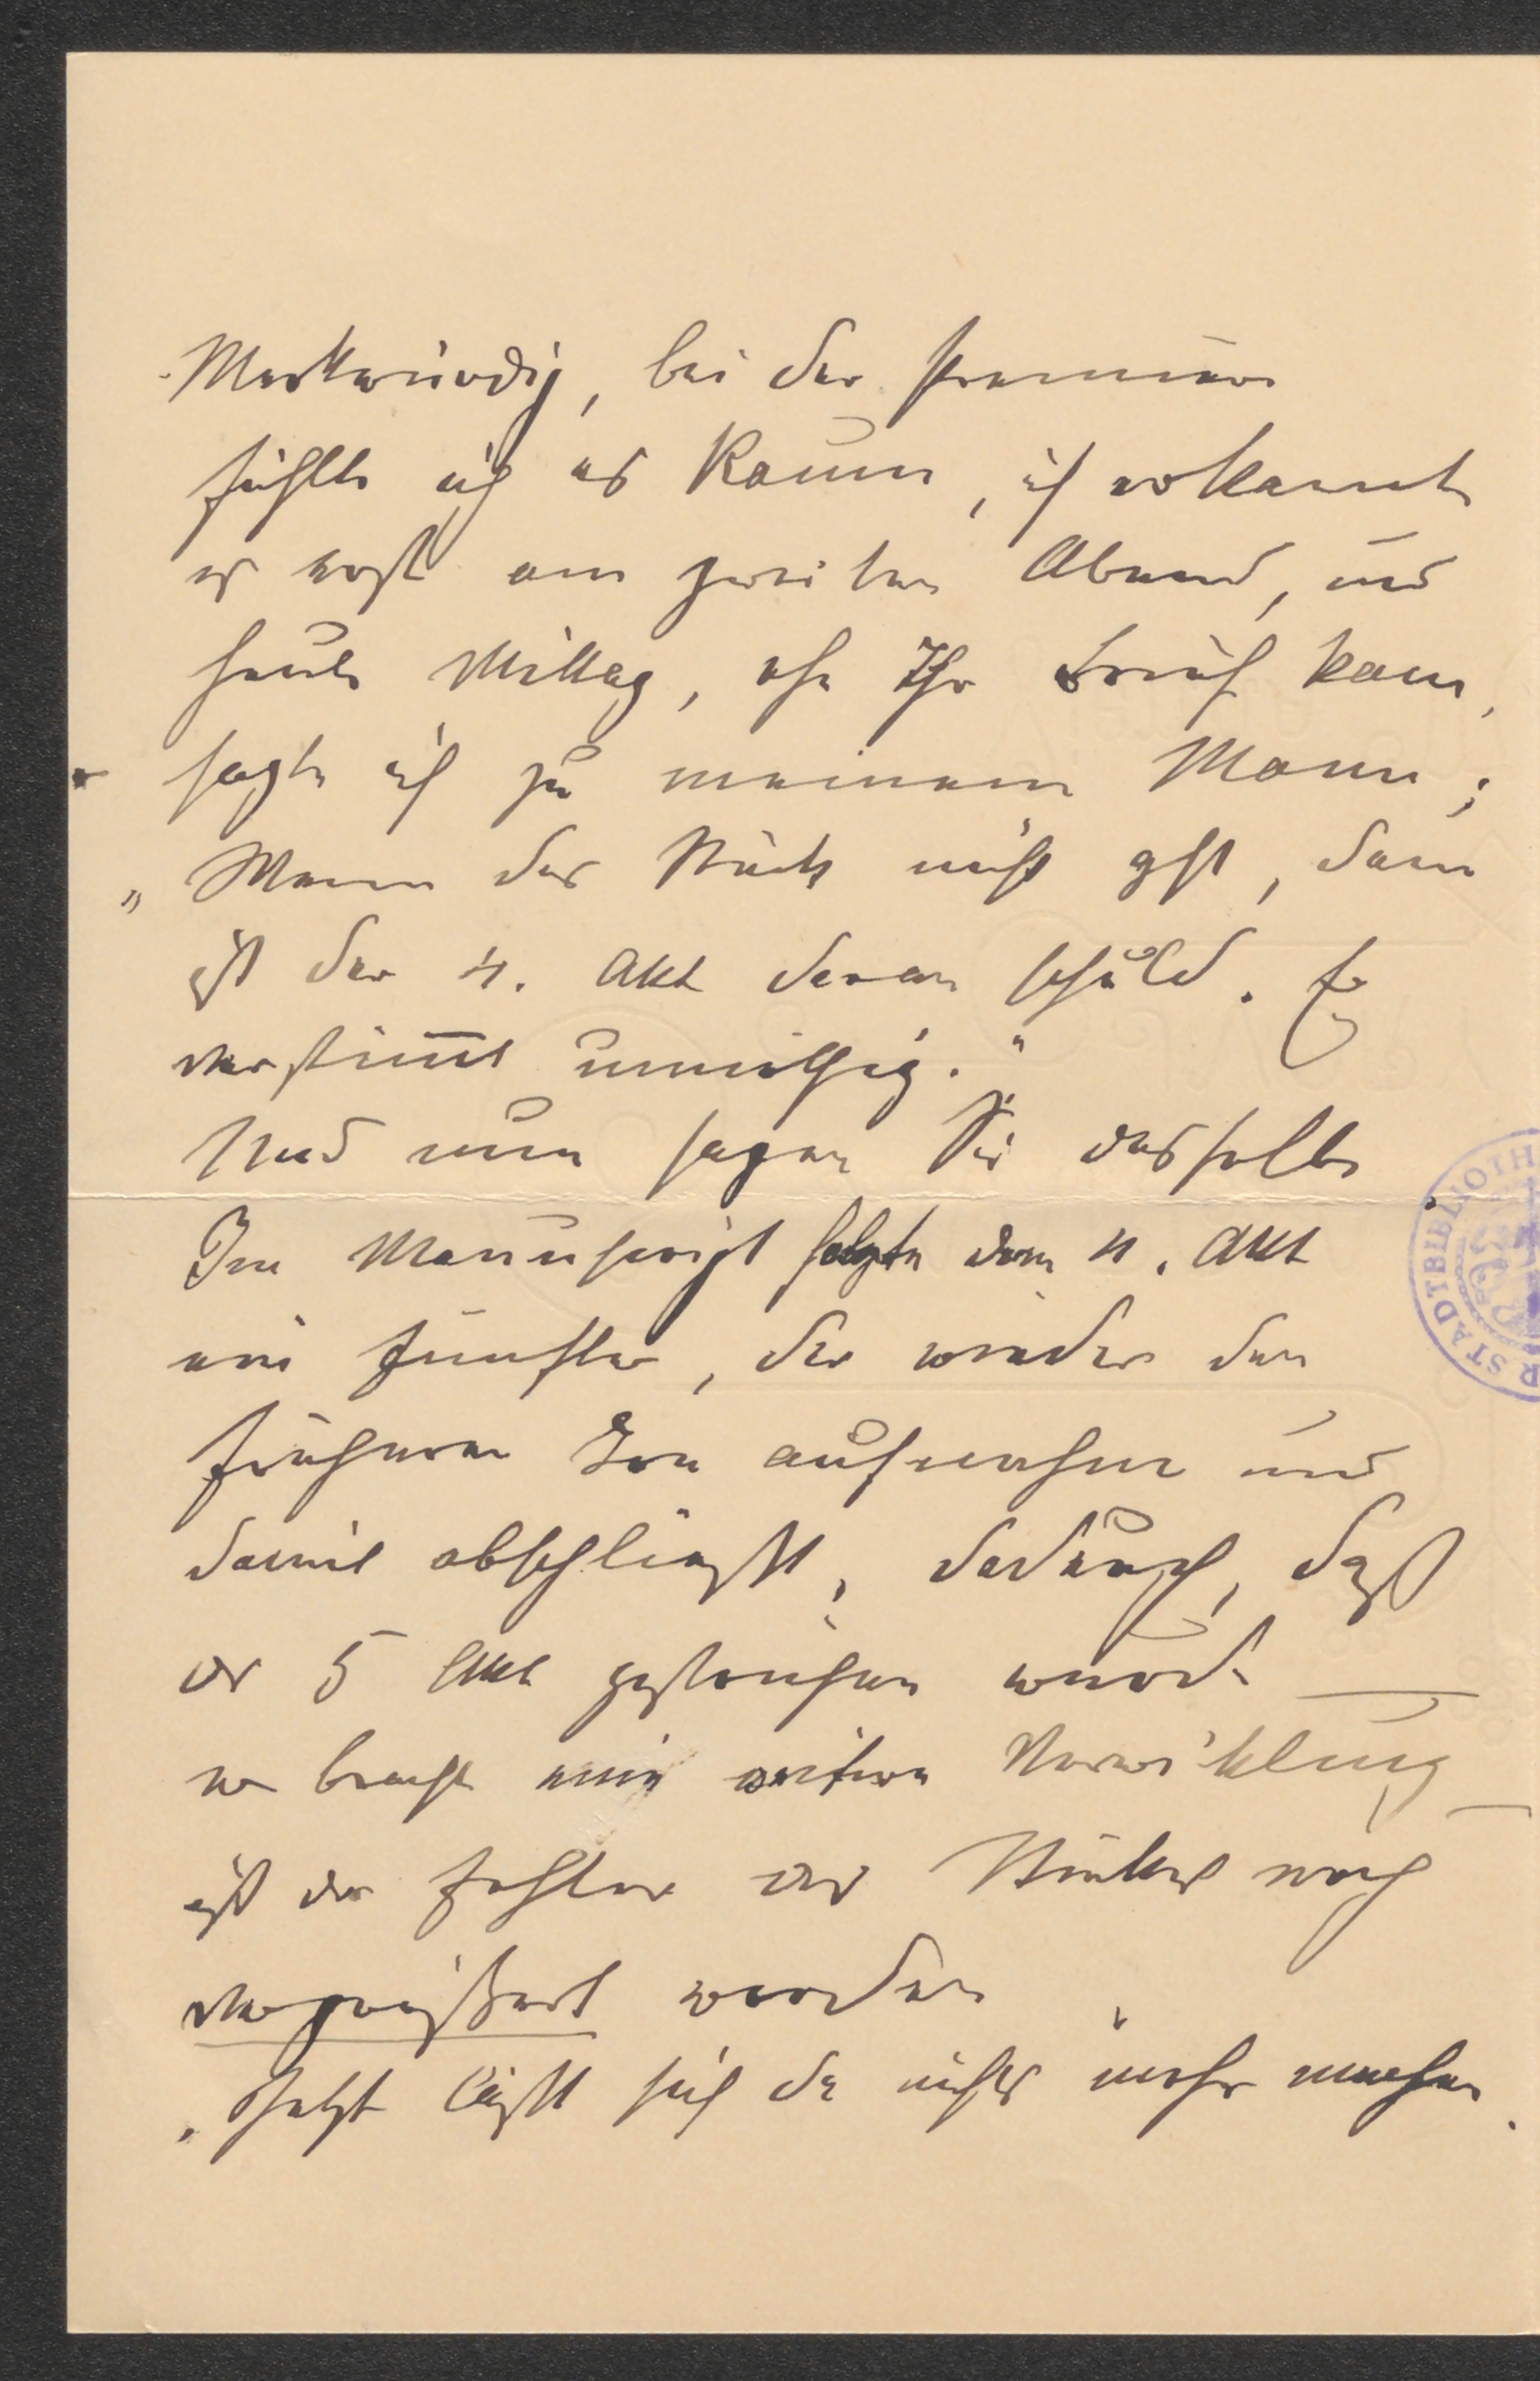 Merkwürdig, bei der Premiere
fühlte ich es kaum, ich erkannte
es erst am zweiten Abend, und
heute Mittag, ehe Ihr Brief kam,
sagte ich zu meinem Mann;
„Wenn das Stück nicht geht, dann
ist der 4. Akt daran schuld. Er
verstimmt unnöthig."
Und nun sagen Sie dasselbe.
Im Manuscript folgte dem 4. Akt
ein fünfter, der wieder den
früheren Ton aufnahm und
damit abschließt, dadurch, daß
der 5 Akt gestrichen wurde —
er bracht eine weitere Verwicklung —
ist der Fehler des Stückes noch
vergrößert worden.
Jetzt läßt sich da nichts mehr machen.
STADTBIBLIOTH